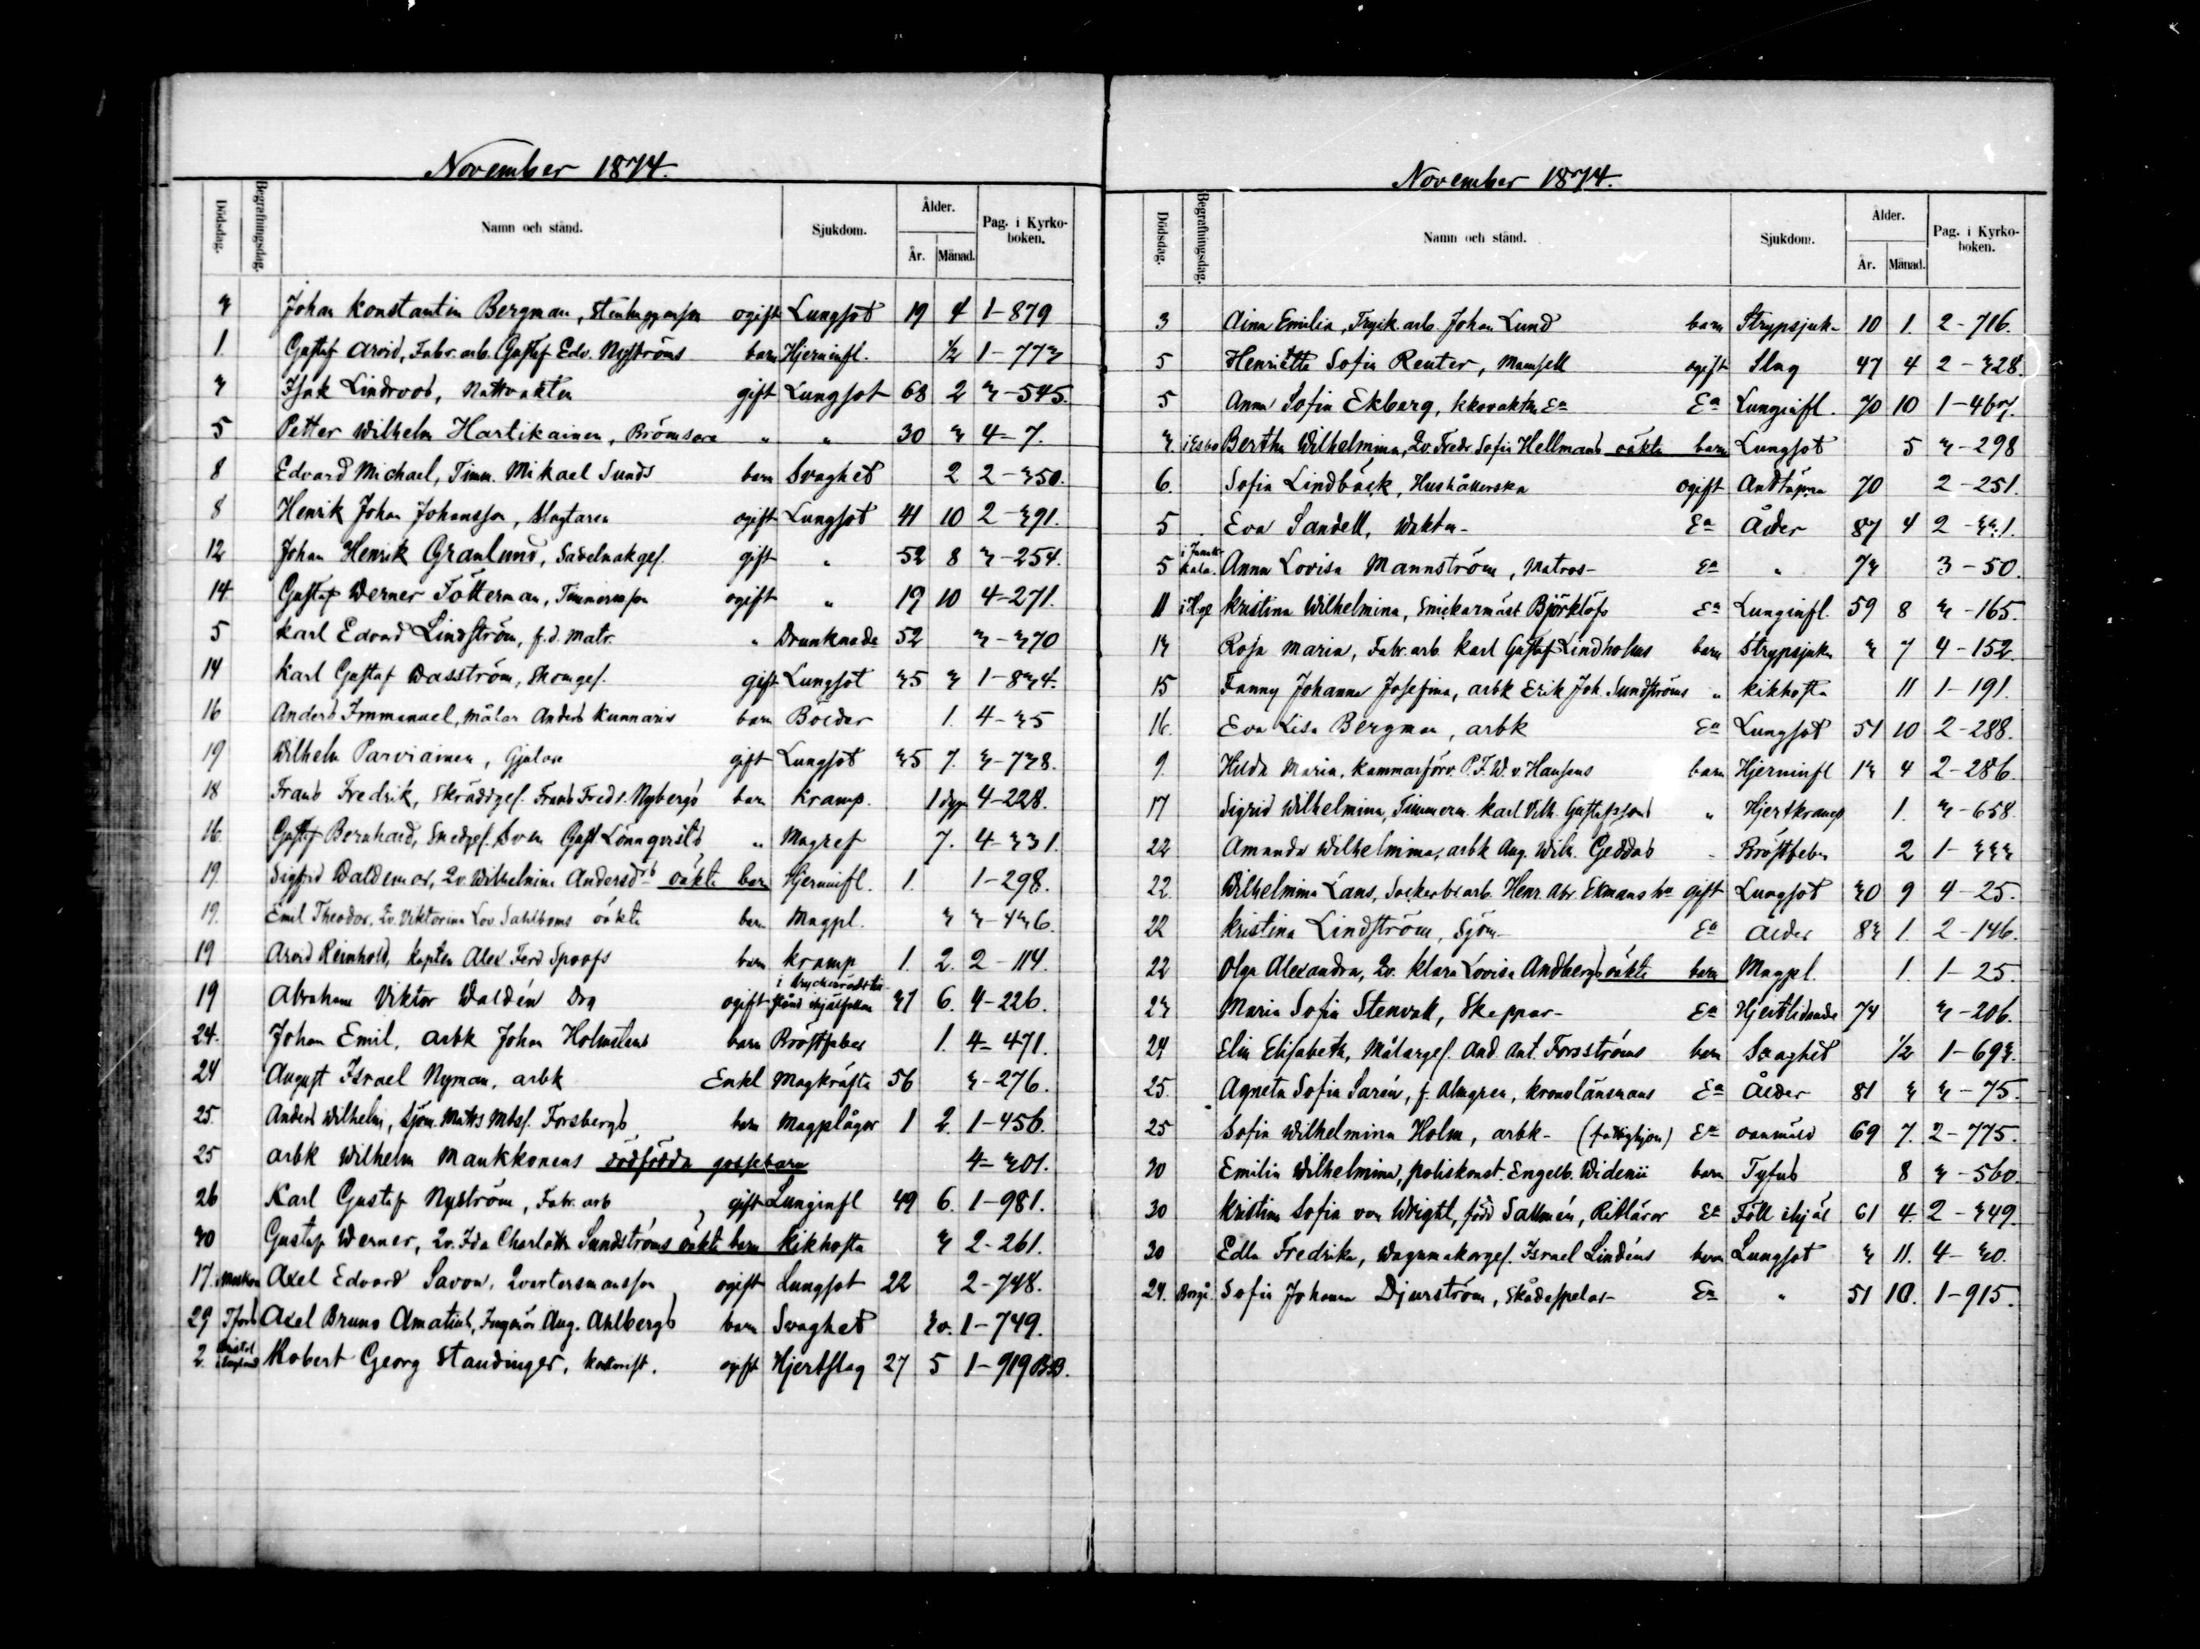 November 1874.
Dödsdag. Begrafningsdag. Namn och stånd. Sjukdom. Ålder. År. Månad. Pag. i Kyrkoboken.
3 Johan Konstantin Bergman, ogift Lungsot 19 4 1-879
1. Gustaf Arvid, Fabr. arb. Gustaf Edv. Nyströms barn Hjerninfl. 1/2 1-773
3 Isak Lindroos, Nattvakten gift Lungsot 68 2 3-545.
5 Petter Wilhelm Hartikainen, " " 30 3 4-7.
8 Edvard Michael, Timm. Mikael Sunds barn Svaghet 2 2-350.
8 Henrik Johan Johansson, Slagtaren ogift Lungsot 41 10 2-391.
12 Johan Henrik Granlund, Sadelmakges. gift " 52 8 3-254.
14 Gustaf Werner Tötterman, Timmermsson ogift " 19 10 4-271.
5 Karl Edvard Lindström, f.d. Matr. " Drunknade 52 3-370
14 Karl Gustaf Dasström, Skomges. gift Lungsot 35 3 1-834.
16 Anders Immanuel, Målar Anders Kunnaris barn Bölder 1. 4-35
19 Wilhelm Parviainen, Gjutare gift Lungsot 35 7. 3-738.
18 Frans Fredrik, Skräddges. Frans Fredr. Nybergs barn Kramp. 1 dygn 4-228.
16 Gustaf Bernhard, Smedges. Sven Gust. Lönnqvists " Magref 7. 4-331.
19. Sigfrid Waldemar, Qv. Wilhelmina Andersd:rs oäkta barn Hjerninfl. 1. 1-298.
19. Emil Theodor, Qv. Viktorina Lov. Sahlboms oäkta barn Magpl. 3 3-436.
19 Arvid Reinhold, Kapten Alex Ferd Spoofs barn Kramp 1. 2. 2-114.
19 Abraham Viktor Waldén Drg ogift i ihjälfallen 31 6. 4-226.
24. Johan Emil, arbk Johan Holmstens barn Bröstfeber 1. 4-471.
24 August Israel Nyman, arbk Enkl Magkräfta 56 3-276.
25. Anders Wilhelm, Sjöm. Matts Mtss. Forsbergs barn Magplågor 1 2. 1-456.
25 arbk Wilhelm Maukkonens dödfödda gossebarn 4-301.
26 Karl Gustaf Nyström, Fabr. arb gift Lunginfl 49 6. 1-981.
30 Gustaf Werner, Qv. Ida Charlotta Sundströms oäkta barn Kikhosta 3 2-261.
17. Axel Edvard Savon, Qvartersmansson ogift Lungsot 22 2-748.
29 Axel Bruno Amatius, Ingeniör Aug. Ahlbergs barn Svaghet 1-749.
2. Bristol i England Robert Georg Staudinger, ogift Hjertslag 27 5 1-919 BB.
November 1874.
Dödsdag. Begrafningsdag. Namn och stånd. Sjukdom. Ålder. År. Månad. Pag. i Kyrkoboken.
3 Aina Emilia, Tryck. arb. Johan Lund barn Strypsjuk- 10 1. 2-716.
5 Henrietta Sofia Reuter, Mamsell ogift Slag 47 4 2-328.
5 Anna Sofia Ekberg, Ea Ea Lunginfl. 70 10 1-467.
3. i Esbo Bertha Wilhelmina, Qv. Fredr. Sofia Hellmans oäkta barn Lungsot 5 3-298
6. Sofia Lindbäck, Hushållerska ogift Andtäppa 70 2-251.
5 Eva Sandell, Vakta- Ea Ålder 87 4 2-331.
5 Anna Lovisa Mannström, Matros- Ea " 73 3-50.
11 Kristina Wilhelmina, Snickarmäst Björklöfs Ea Lunginfl. 59 8 3-165.
13 Rosa Maria, Fabr. arb. Karl Gustaf Lindholms barn Strypsjuka 3 7 4-152.
15 Fanny Johanna Josefina, arbk Erik Joh. Sundströms " Kikhosta 11 1-191.
16. Eva Lisa Bergman, arbk Ea Lungsot 51 10 2-288.
9. Hilda Maria, Kammarförv. P.F.W. v. Hausens barn Hjerninfl 13 4 2-286.
17 Sigrid Wilhelmina, Timmerm. Karl Vilh. Gustafssons " Hjertkramp 1. 3-658.
22 Amanda Wilhelmina, arbk Aug. Wilh. Geddas " Bröstfeber 2 1-333
22. Wilhelmina Lans, Sockerbr. arb. Henr. Abr. Ekmans ha gift Lungsot 30 9 4-25.
22 Kristina Lindström, Sjöm- Ea Ålder 83 1. 2-146.
22 Olga Alexandra, Qv. Klara Lovisa Andbergs oäkta barn Magpl. 1. 1-25.
23 Maria Sofia Stenvall, Skeppar- Ea Hjertlidande 74 3-206.
24 Elin Elisabeth, Målarges. And. Ant. Forsströms barn Svaghet 1/2 1-693.
25. Agneta Sofia Sarén, f. Almgren, Kronolänsmans Ea Ålder 81 3 3-75.
25 Sofia Wilhelmina Holm, arbk- (fattighjon) Ea 69 7. 2-775.
30 Emilia Wilhelmina, poliskonst. Engelb. Widenii barn Tyfus 8 3-560.
30 Kristina Sofia von Wright, född Sallmén, Ritlärar Ea Föll ihjäl 61 4. 2-349.
30 Edla Fredrika, Vagnmakarges. Israel Lindéns barn Lungsot 3 11. 4-30.
29. Borgå. Sofia Johanna Djurström, Skådespelar- Ea " 51 10. 1-915.